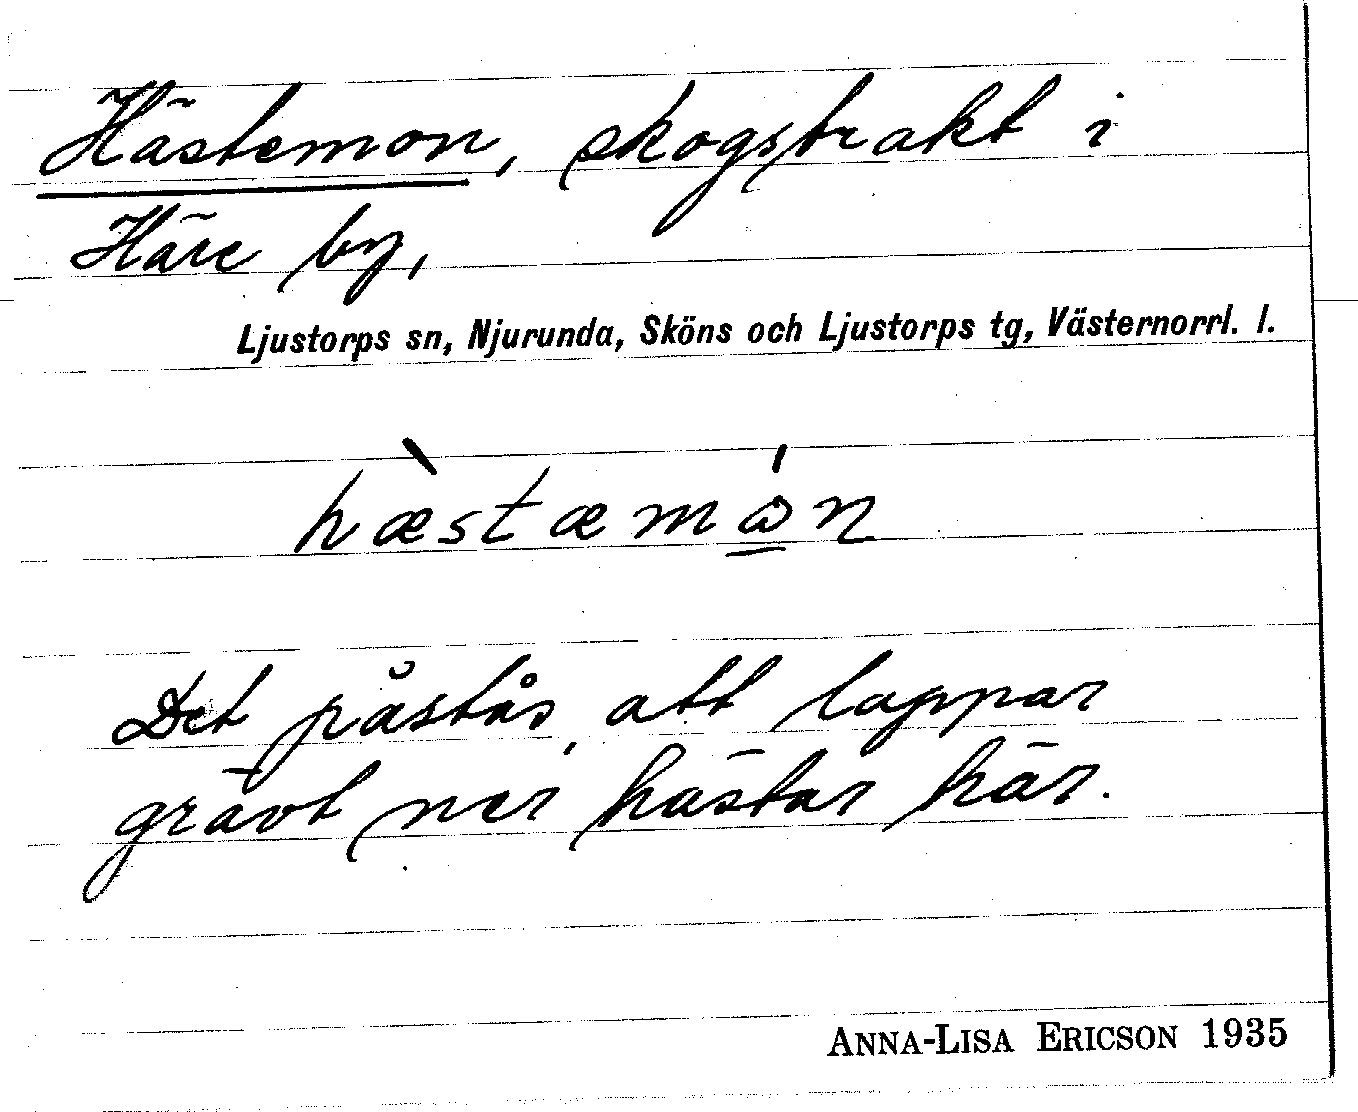 Hästemon, skogstrakt i
Häre by,
Ljustorps sn, Njurunda, Sköns och Ljustorps tg, Västernorrl. l.
hæ̀stæmɷ́n
Det påstås, att lappar
grävt ner hästar här.
ANNA-LISA ERICSON 1935